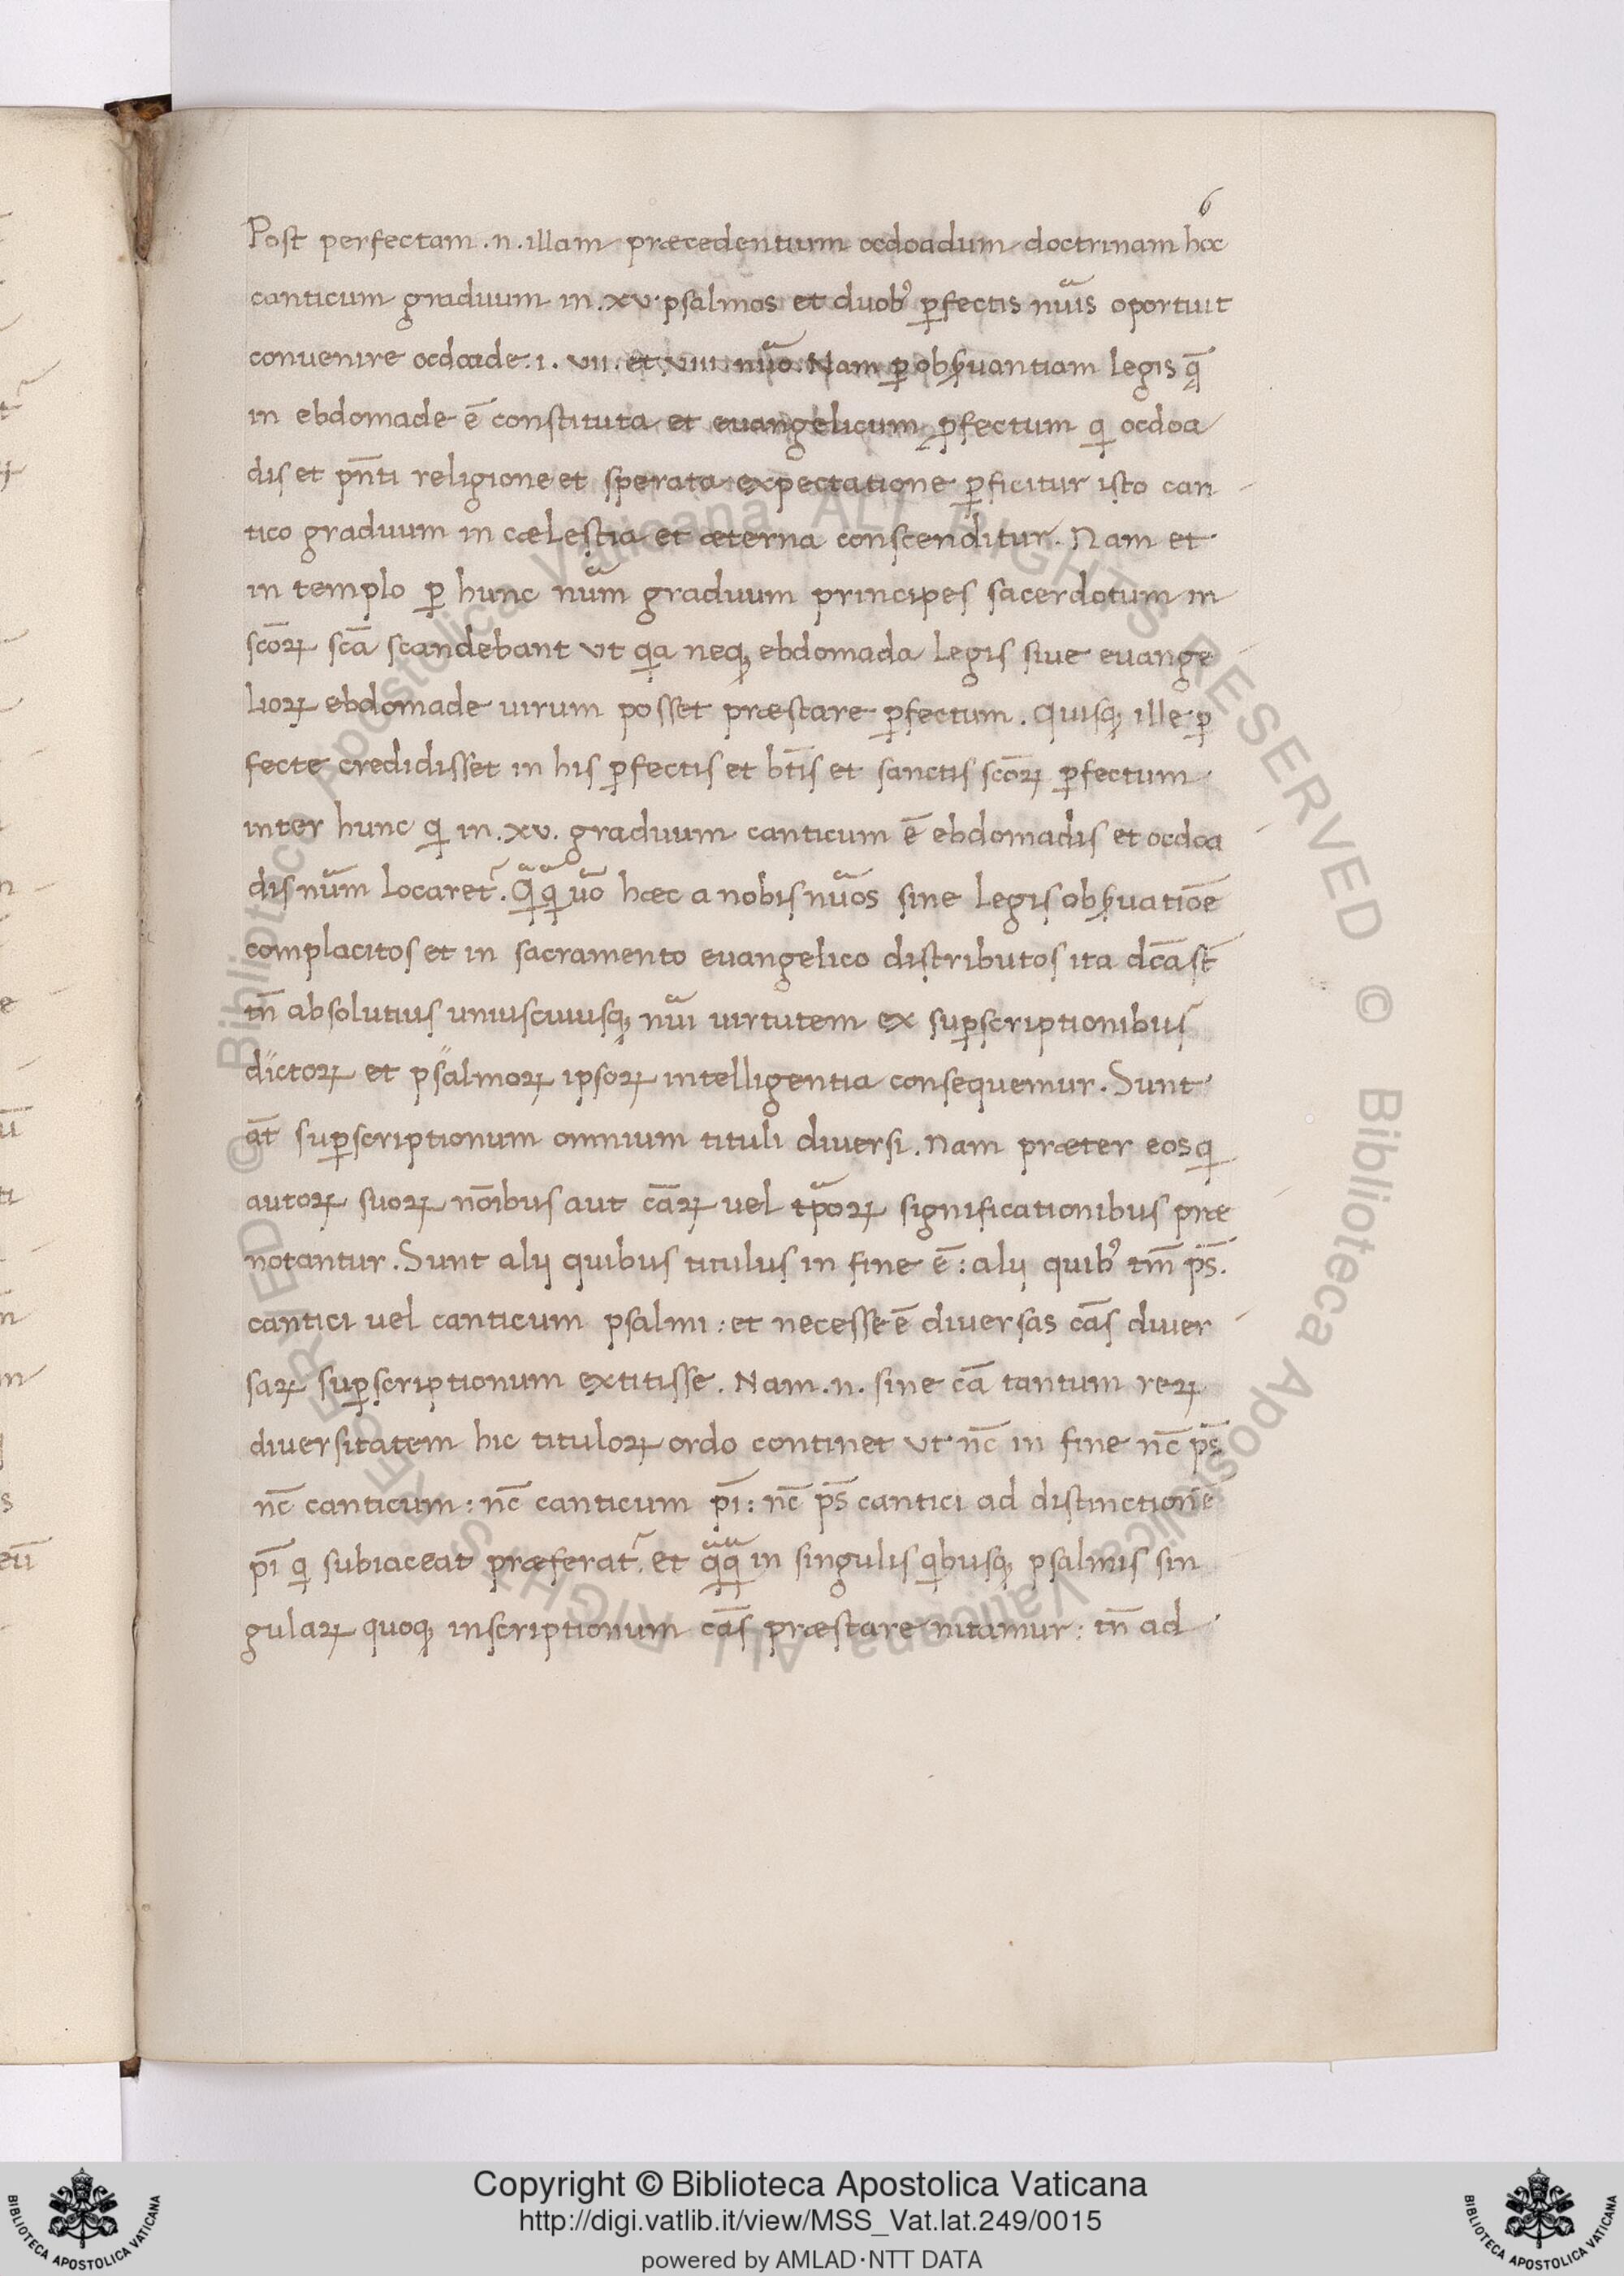 6
Post perfectam .n. illam præcedentium ocdoadum doctrinam hoc
canticum graduum in .xv. psalmos et duobꝰ ꝑfectis nuͣis oportuit
conuenire ocdoade .i. vii. et viii nuͣo. Nam ꝑ obẜuantiam legis q̄
in ebdomade ē constituta et euangelicum ꝓfectum qi ocdoa
dis et pn̄ti religione et sperata expectatione ꝑficitur isto can
tico graduum in cælestia et æterna conscenditur. Nam et
in templo ꝑ hunc nuͣm graduum principes sacerdotum in
scōꝝ scā scandebant vt qia neqꝫ ebdomada legis siue euange
lioꝝ ebdomade uirum posset præstare ꝑfectum. Quisqꝫ ille ꝑ
fecte credidisset in his ꝑfectis et bt̄is et sanctis scōꝝ ꝑfectum
inter hunc qi in .xv. graduum canticum ē ebdomadis et ocdoa
dis nuͣm locaretᷣ. Qͣiqͣi uͦo hæc a nobis nuͣos sine legis obẜuatiōe
complacitos et in sacramento euangelico distributos ita dcā st̄
tn̄ absolutius uniuscuiusqꝫ nuͣi uirtutem ex suꝑscriptionibus
dictoꝝ et psalmoꝝ ipsoꝝ intelligentia consequemur. Sunt
at̄ suꝑscriptionum omnium tituli diuersi. Nam præter eos qi
autoꝝ suoꝝ noībus aut cāꝝ vel tꝑoꝝ significationibus præ
notantur. Sunt alij quibus titulus in fine ē: alij quibꝰ tm̄ ps̄.
cantici vel canticum psalmi: et necesse ē diuersas cās diuer
saꝝ suꝑscriptionum extitisse. Nam .n. sine cā tantum reꝝ
diuersitatem hic tituloꝝ ordo continet vt nc̄ in fine nc̄ ps̄
nc̄ canticum: nc̄ canticum pī: nc̄ ps̄ cantici ad distinctionē
pī qi subiaceat præferatᷣ. et qͣiqͣi in singulis qibusqꝫ psalmis sin
gulaꝝ quoqꝫ inscriptionum cās præstare nitamur: tn̄ ad
Copyright © Biblioteca Apostolica Vaticana
http://digi.vatlib.it/view/MSS_Vat.lat.249/0015
powered by AMLAD·NTT DATA
BIBLIOTECA APOSTOLICA VATICANA
BIBLIOTECA APOSTOLICA VATICANA
© Biblioteca Apostolica Vaticana ALL RIGHTS RESERVED © Biblioteca Apostolica Vaticana ALL RIGHTS RESERVED